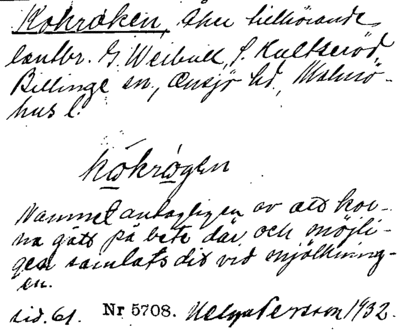 Kokroken, åker tillhörande
lantbr. G. Weibull, f. Hultseröd,
Billinge sn, Onsjö hd, Malmö-
hus l.
kökrögen
Namnet antagligen av att kor-
na gått på bete där och möjli-
gen samlats dit vid mjölkning-
en.
sid. 61. Nr 5708. Helga Persson 1932.